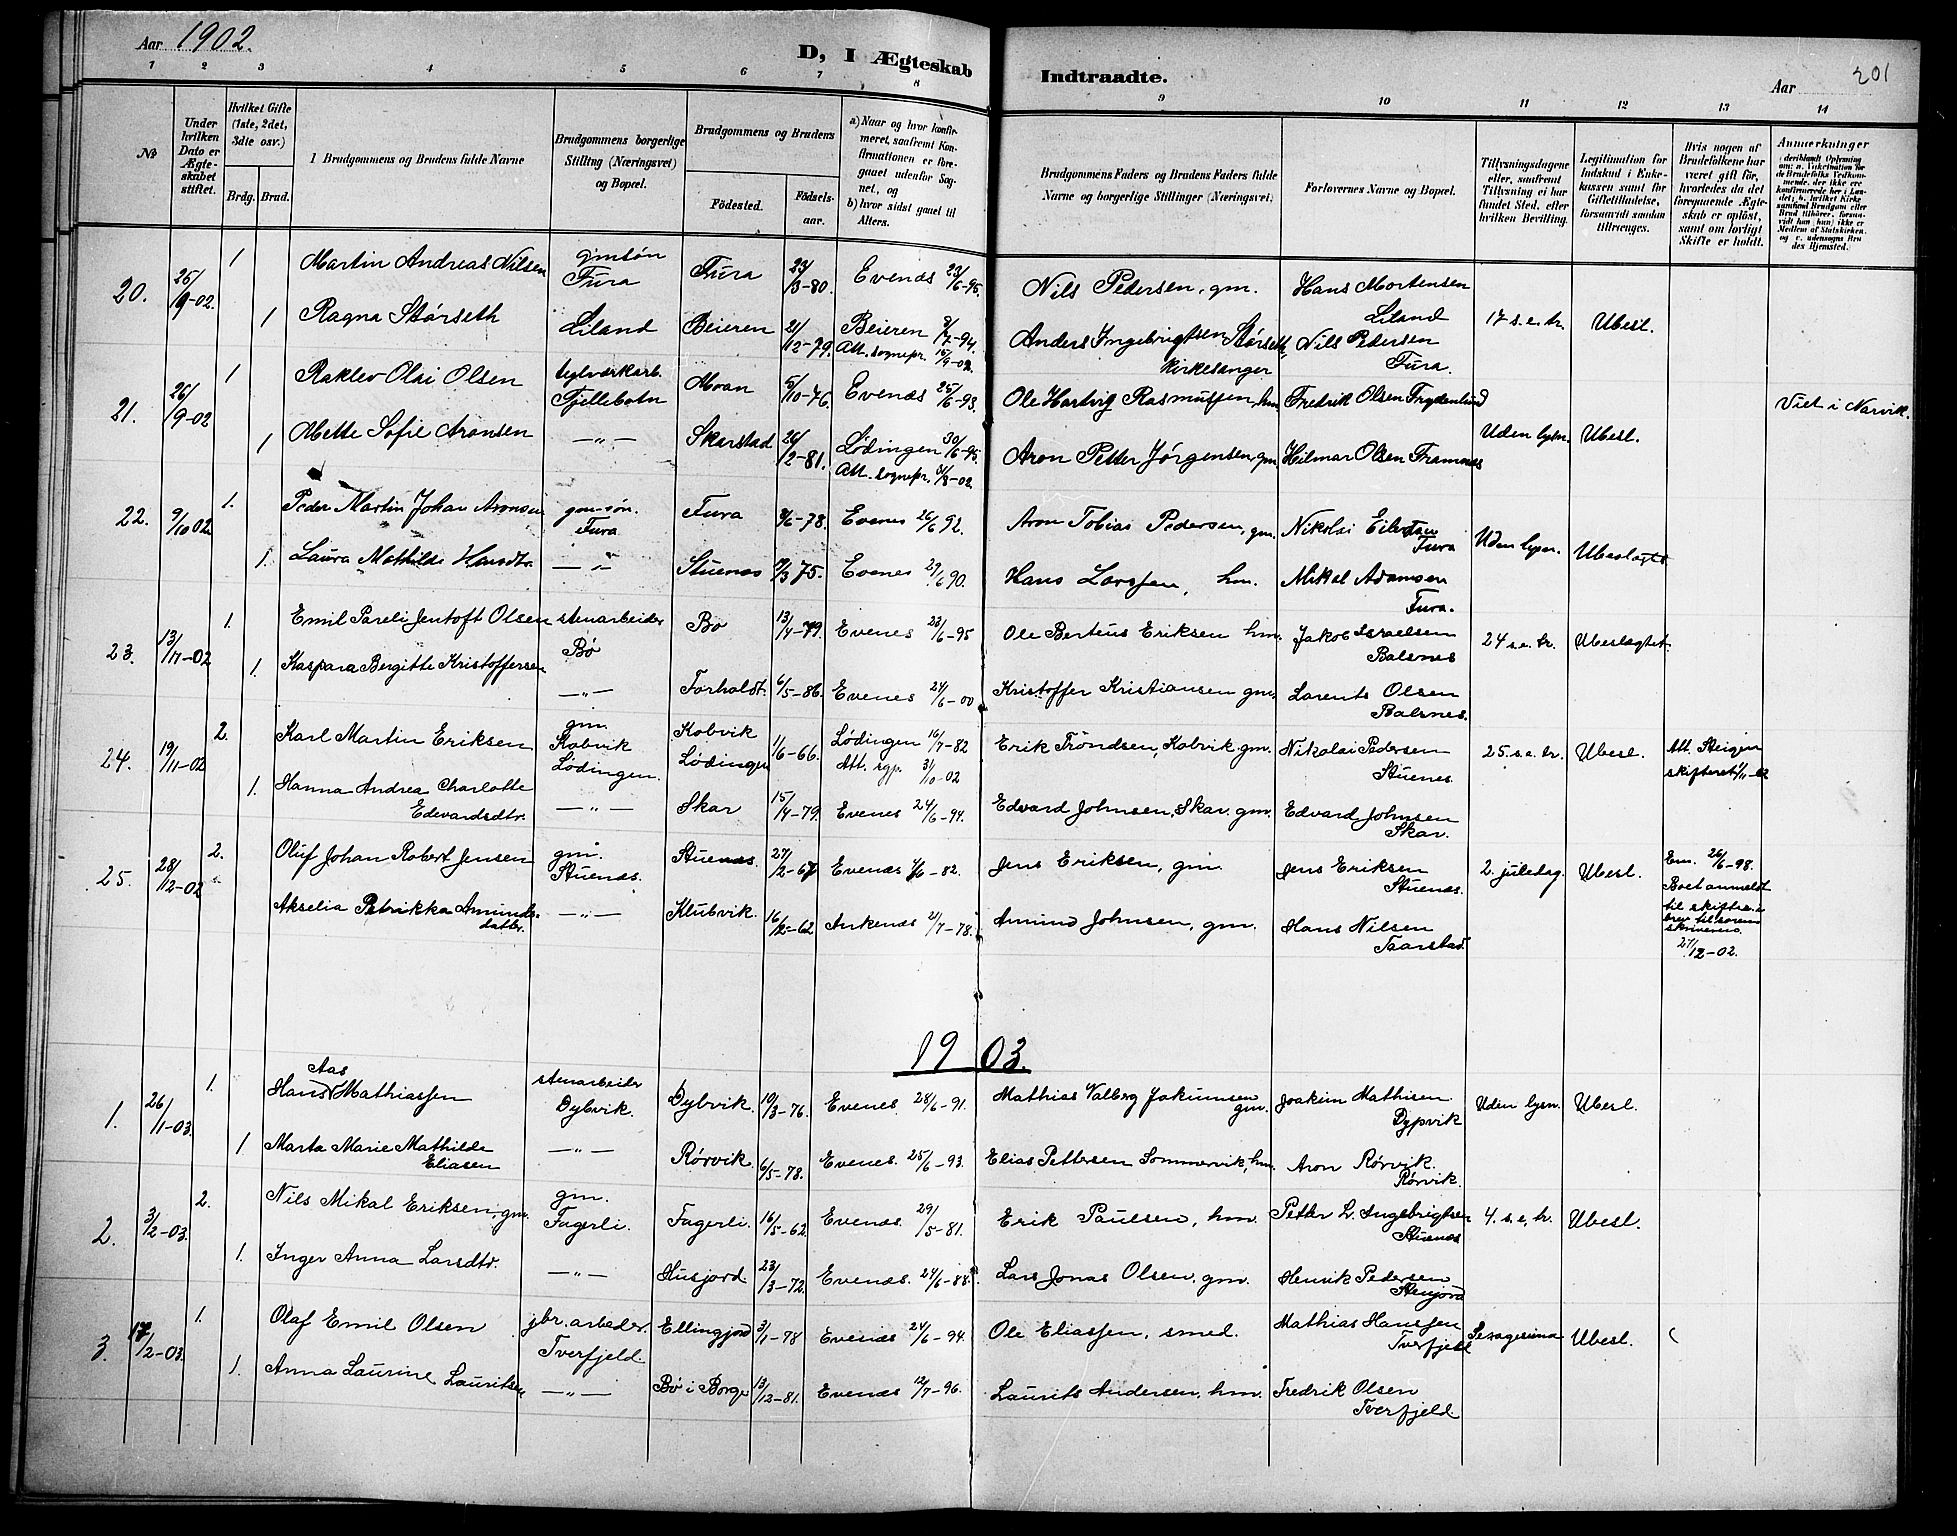 Aar 1902.
D, I Ægteskab Indtraadte.
Aar 201
1 2 3 4 5 6 7 8 9 10 11 12 13 14
№
Under hvilken Dato er Ægteskabet stiftet.
Hvilket Gifte (1ste, 2det, 3die osv.)
Brdg. Brud.
1 Brudgommens og Brudens fulde Navne
Brudgommens borgerlige Stilling (Næringsvei) og Bopæl.
Brudgommens og Brudens
Fødested. Fødselsaar.
a) Naar og hvor konfirmeret, saafremt Konfirmationen er foregaaet udenfor Sognet, og
b) hvor sidst gaaet til Alters.
Brudgommens Faders og Brudens Faders fulde Navne og borgerlige Stillinger (Næringsvei).
Forlovernes Navne og Bopæl.
Tillysningsdagene eller, saafremt Tillysning ei har fundet Sted, efter hvilken Bevilling.
Legitimation for Indskud i Enkekassen samt for Giftetilladelse, forsaavidt saadan tiltrænges.
Hvis nogen af Brudefolkene har været gift før, hvorledes da det foregaaende Ægteskab er opløst, samt om lovligt Skifte er holdt.
Anmærkninger
20. 25/9-02. 1 Martin Andreas Nilsen gmsøn Fura Fura 23/3-80. Evenæs 23/6-95. Nils Pedersen, gm. Hans Mortensen Liland 17 s.e.tr. Ubesl.
1 Ragna Størseth Liland Beieren 21/12-79. Beieren 8/7-94. Att. sognepr. 15/9-02. Anders Ingebrigtsen Størseth, kirkesanger Nils Pedersen Fura.
21. 26/9-02 1 Raklev Olai Olsen teglværkarb. Fjellbotn Moan 5/10-76. Evenæs 25/6-93. Ole Hartvig Rasmussen, hm. Fredrik Olsen Frydenlund Uden lysn. Ubesl. Viet i Narvik.
1 Mette Sofie Aronsen —"— Skarstad 26/2-81. Lødingen 30/6-95. Att. sognepr. 4/8-02. Aron Petter Jørgensen, gm. Hilmar Olsen Framnes
22. 9/10 02 1. Peder Martin Johan Aronsen gm-søn. Fura Fura 8/6-78. Evenes 26/6 92. Aron Tobias Pedersen, gm. Nikolai Eilertsen Fura Uden lysn. Ubeslægtet
1. Laura Mathilde Hansdtr. —"— Stuenæs 9/3 75. Evenes 29/6 90. Hans Larssen, hm. Mikal Adamsen Fura.
23. 13/11-02 1. Emil Pareli Jentoft Olsen stenarbeider Bø Bø 13/4-79. Evenes 23/6-95 Ole Berteus Eriksen hm. Jakob Israelsen Balsnes 24 s.e.tr. Ubeslægtet.
1. Kaspara Bergitte Kristoffersen —"— Forholdt. 6/5-86. Evenes 24/6-00 Kristoffer Kristiansen gm. Larents Olsen Balsnes.
24. 19/11-02 2. Karl Martin Eriksen gm. Kobvik Lødingen. Kobvik Lødingen 1/6-66. Lødingen 16/7-82 Att. sgp. 31/10-02 Erik Tröndsen, Kobvik gm. Nikolai Pedersen Stuenes. 25. s.e.tr. Ubesl. Att. Steigen skifteret 1/11-02
1. Hanna Andrea Charlotte Edevardsdtr. —"— Skar 15/4-79. Evenes 24/6-94. Edvard Johnsen, Skar. gm. Edvard Johnsen Skar.
25. 28/12-02 2. Oluf Johan Robert Jensen gm. Stuenæs. Stuenæs. 27/2-67 Evenæs 4/6-82. Jens Eriksen, gm. Jens Eriksen Stuenæs. 2. juledag. Ubesl. Em. 26/6-98. Boet anmeldt til skifte i brev til sorenskriveren 27/12-02.
Akselia Petrikka Amundsdatter. —"— Klubvik. 16/2-62 Ankenæs 21/7-78. Amund Johnsen, gm. Hans Nilsen Taarstad.
1903.
1. 26/1-03. 1. Hans Aas Mathiassen stenarbeider Dybvik. Dybvik. 10/3-76. Evenes. 28/6-91. Mathias Valberg Jakumsen gm. Joakim Mathisen Dypvik Uden lysn. Ubesl.
1 Marta Marie Mathilde Eliasen —"— Rørvik 6/5-78. Evenes. 25/6-93. Elias Pettersen Sommervik, hm. Aron Rørvik. Rørvik.
2. 3/2-03. 2. Nils Mikal Eriksen, gm. gm. Fagerli. Fagerli. 16/5-62. Evenæs. 29/5-81. Erik Paulsen, hm. Petter L. Ingebrigtsen Stuenæs 4. s.e.tr. Ubesl.
1. Inger Anna Larsdtr. —"— Husjord. 23/3-72. Evenæs. 24/6-88. Lars Jonas Olsen, gm. Henrik Pedersen Stenjord
3. 17/2-03. 1. Olaf Emil Olsen jbr. arbeder. Tverfjeld. Ellingjord 3/1-78 Evenæs 24/6-94. Ole Eliassen, smed. Mathias Hanssen Tverfjeld Sexagesima Ubesl.
1. Anna Laurine Lauritsen —"— Bø i Borge 13/12-81. Evenæs 12/7-96. Laurits Andersen, hm. Fredrik Olsen Tverfjeld.